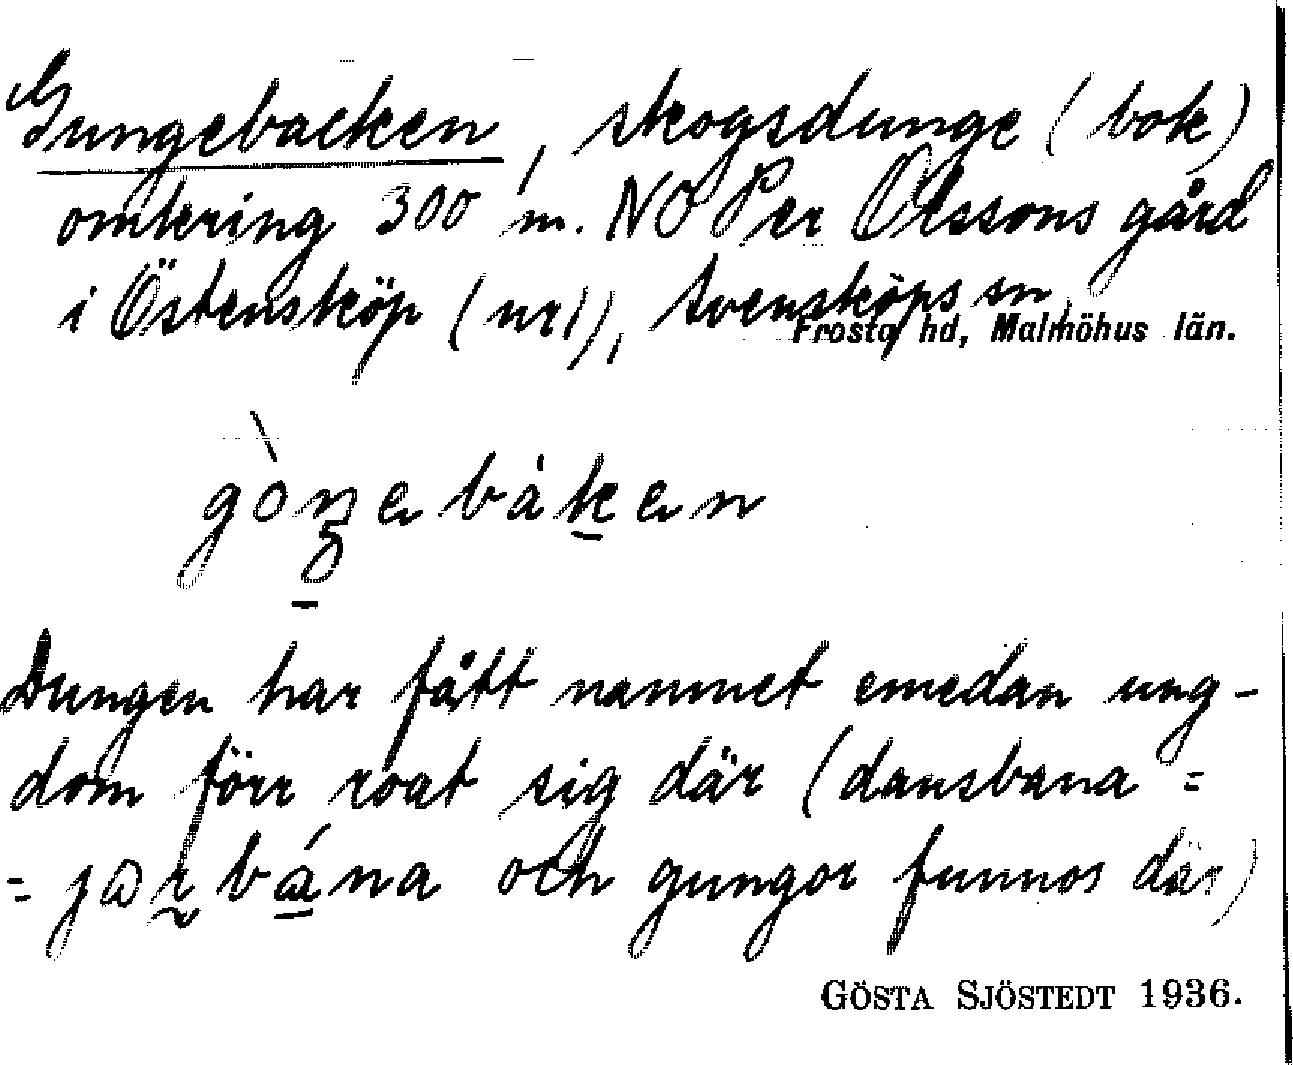 Gungebacken, skogsdunge (bok)
omkring 300 m. NO Per Olssons gård
i Östensköp (nr 1), Svensköps sn,
Frosta hd, Malmöhus län.
Dungen har fått namnet emedan ung-
dom förr roat sig där (dansbana =
= och gungor funnos där)
GÖSTA SJÖSTEDT 1936.